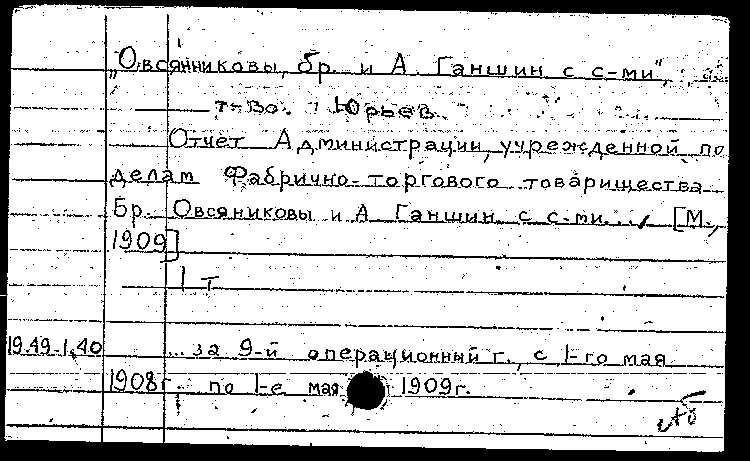 „Овсянниковы, бр. и А. Ганшин с с-ми",
т-во. Юрьев.
Отчет Администрации, учрежденной по
делам Фабрично-торгового товарищества
Бр. Овсяниковы и А Ганшин с с-ми... [М.,
1909]
1 т
19.49-1.40 ...за 9-й операционный г., с 1-го мая
1908г. по 1-е мая 1909г.